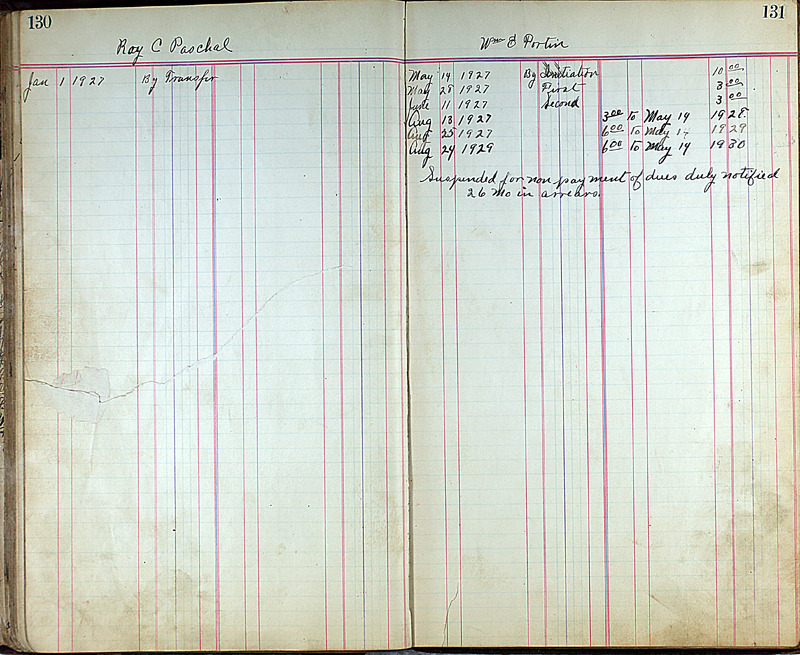 130
Roy C Paschal
Jan 1 1927 By Transfer
131
Wm E Portin
May 14 1927 By Initiation 10 00
May 28 1927 First 3 00
June 11 1927 Second 3 00
Aug 13 1927 3 00 to May 14 1928.
Aug 25 1927 6 00 to May 14 1929
Aug 24 1929 6 00 to May 14 1930
Suspended for non payment of dues duly notified
26 Mo in arrears.